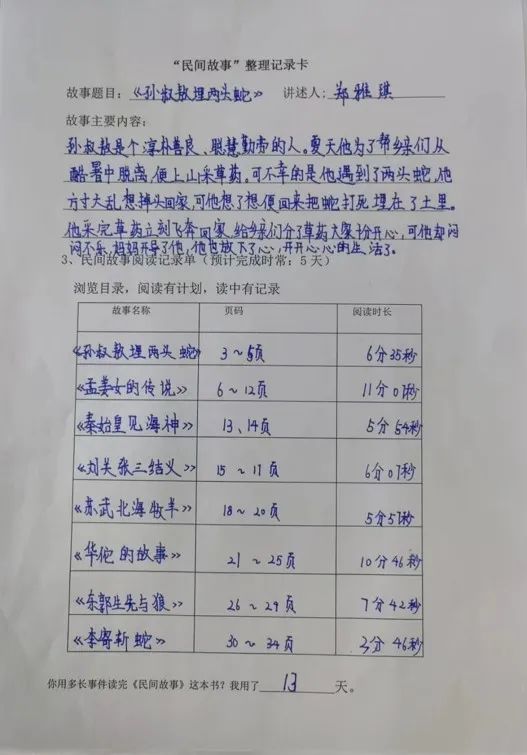 “民间故事”整理记录卡
故事题目：《孙叔敖埋两头蛇》 讲述人：郑雅琪
故事主要内容：
孙叔敖是个淳朴善良、聪慧勤劳的人。夏天他为了帮乡亲们从
酷暑中脱离，便上山采草药。可不幸的是他遇到了两头蛇，他
方寸大乱想掉头回家，可他想了想便回来把蛇打死埋在了土里。
他采完草药立刻飞奔回家，给乡亲们分了草药大家十分开心，可他却闷
闷不乐，妈妈开导了他，他也放下了心，开开心心的生活了。
3、民间故事阅读记录单（预计完成时常：5天）
浏览目录，阅读有计划，读中有记录
故事名称 页码 阅读时长
《孙叔敖埋两头蛇》 3～5页 6分35秒
《孟姜女的传说》 6～12页 11分01秒
《秦始皇见海神》 13、14页 5分54秒
《刘关张三结义》 15～17页 6分07秒
《苏武北海牧羊》 18～20页 5分57秒
《华佗的故事》 21～25页 10分46秒
《东郭先生与狼》 26～29页 7分42秒
《李寄斩蛇》 30～34页 3分46秒
你用多长事件读完《民间故事》这本书？我用了13天。